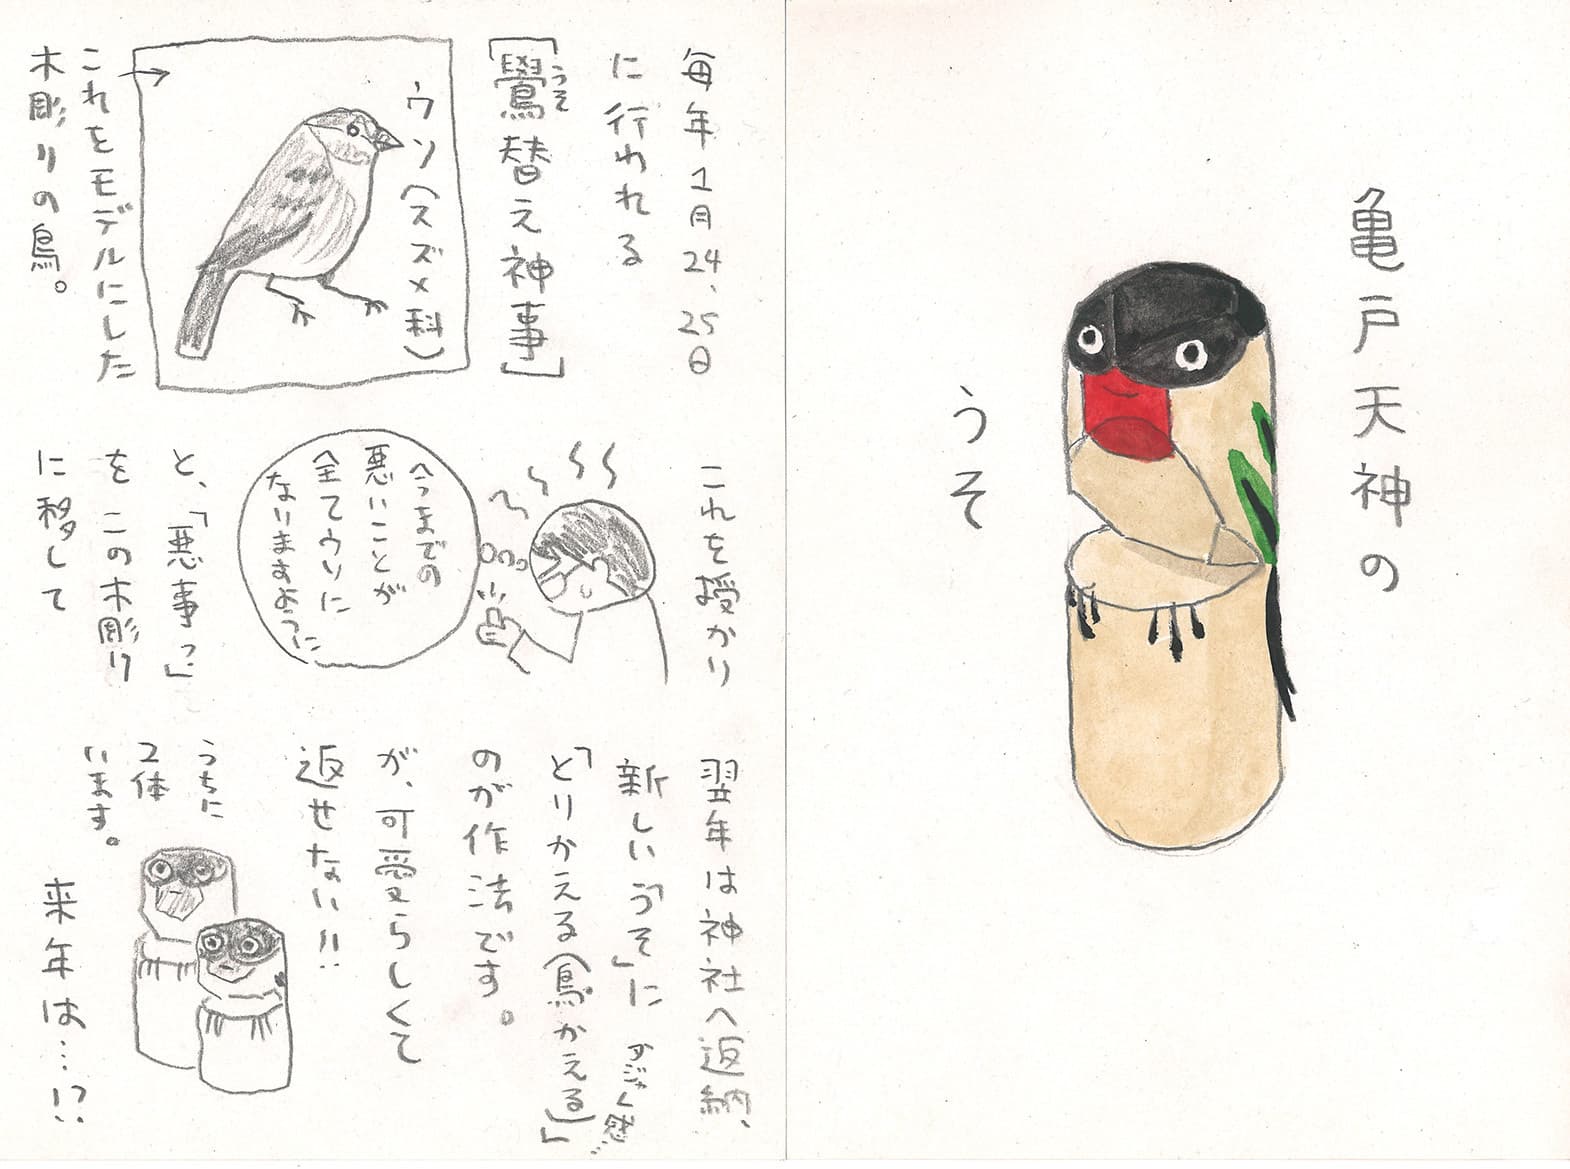 亀戸天神の
うそ
毎年1月24、25日
に行われる
「鷽替え神事」
うそ
ウソ(スズメ科)
これをモデルにした
木彫りの鳥。
これを授かり
今までの
悪いことが
全てウソに
なりますように
と、「悪事っ」
をこの木彫り
に移して
翌年は神社へ返納、
新しい「うそ」に
「とりかえる(鳥かえる)」
ダジャレ感…
のが作法です。
が、可愛らしくて
返せない!!
うちに
2体
います。
来年は…!?